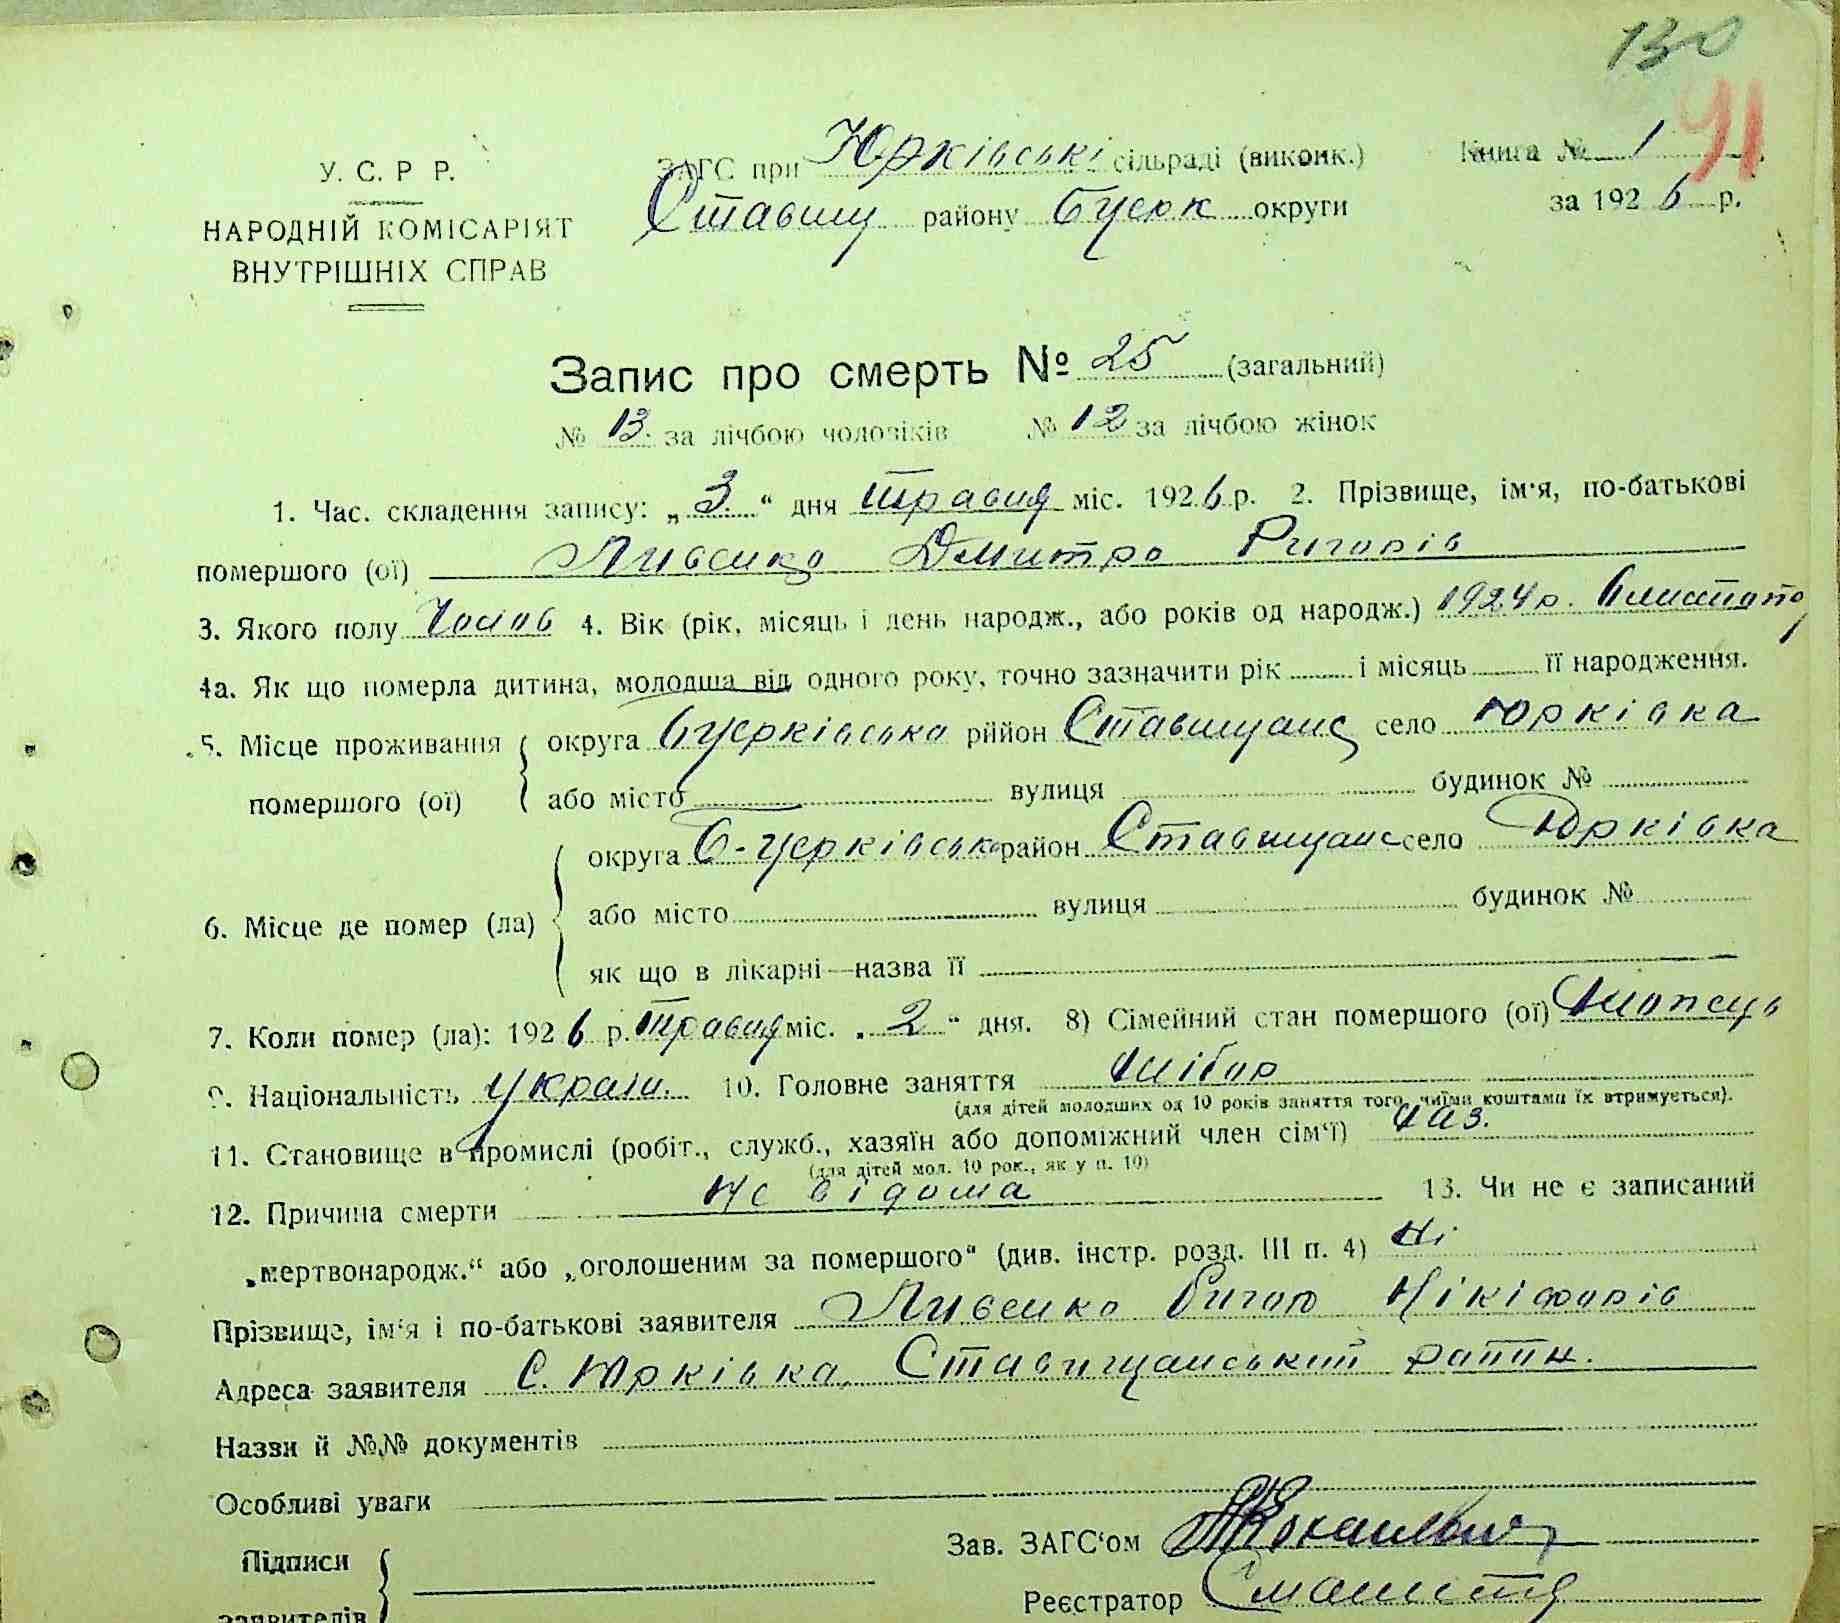 130
91
У. С. Р Р.
НАРОДНІЙ КОМІСАРІЯТ
ВНУТРІШНІХ СПРАВ
ЗАГС при Юрківські сільраді (виконк.)
Книга № 1
Ставищ району Бцерк округи
за 1926 р.
Запис про смерть № 25 (загальний)
№ 13. за лічбою чоловіків № 12 за лічбою жінок
1. Час. складення запису: „3.“ дня травня міс. 1926 р. 2. Прізвище, ім'я, по-батькові
помершого (ої) Лисенко Дмитро Ригорів
3. Якого полу Чолов 4. Вік (рік, місяць і день народж., або років од народж.) 1924 р. 6 листопад
4а. Як що померла дитина, молодша від одного року, точно зазначити рік і місяць її народження.
5. Місце проживання помершого (ої) округа Бцерківська рййон Ставищанс село Юрківка
або місто вулиця будинок №
6. Місце де помер (ла) округа Б-церківська район Ставищанс село Юрківка
або місто вулиця будинок №
як що в лікарні—назва її
7. Коли помер (ла): 1926 р. травня міс. „2“ дня. 8) Сімейний стан помершого (ої) хлопець
9. Національність Україн. 10. Головне заняття хлібор
(для дітей молодших од 10 років заняття того, чиїми коштами їх втримується).
11. Становище в промислі (робіт., служб., хазяїн або допоміжний член сім'ї) хаз.
(для дітей мол. 10 рок., як у п. 10)
12. Причина смерти не відома 13. Чи не є записаний
„мертвонародж.“ або „оголошеним за помершого“ (див. інстр. розд. III п. 4) ні
Прізвище, ім'я і по-батькові заявителя Лисенко Ригор Нікіфорів
Адреса заявителя с. Юрківка, Ставищанський район.
Назви й №№ документів
Особливі уваги
Підписи
заявителів
Зав. ЗАГС'ом
Реєстратор